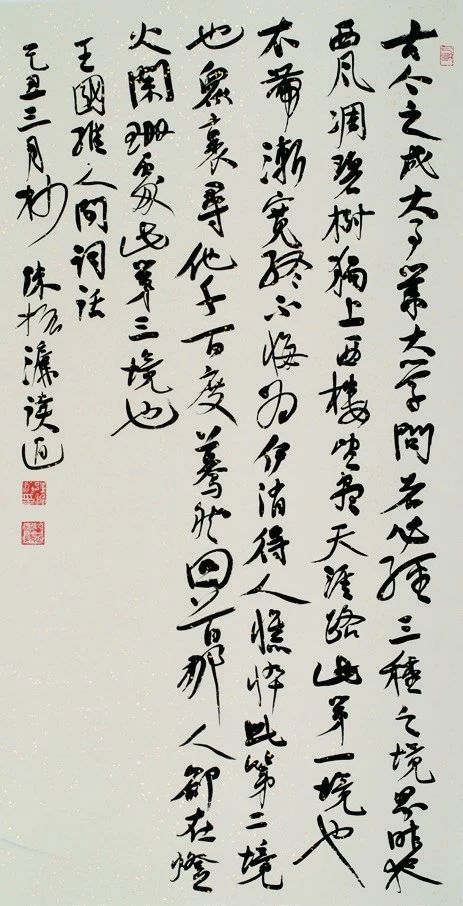 古今之成大事業大學問者必經三種之境界昨夜
西風凋碧樹獨上西樓望盡天涯路此第一境也
衣帶漸寬終不悔為伊消得人憔悴此第二境
也眾裏尋他千百度驀然回首那人卻在燈
火闌珊處此第三境也
王國維人間詞話
己丑三月杪 陳振濂讀